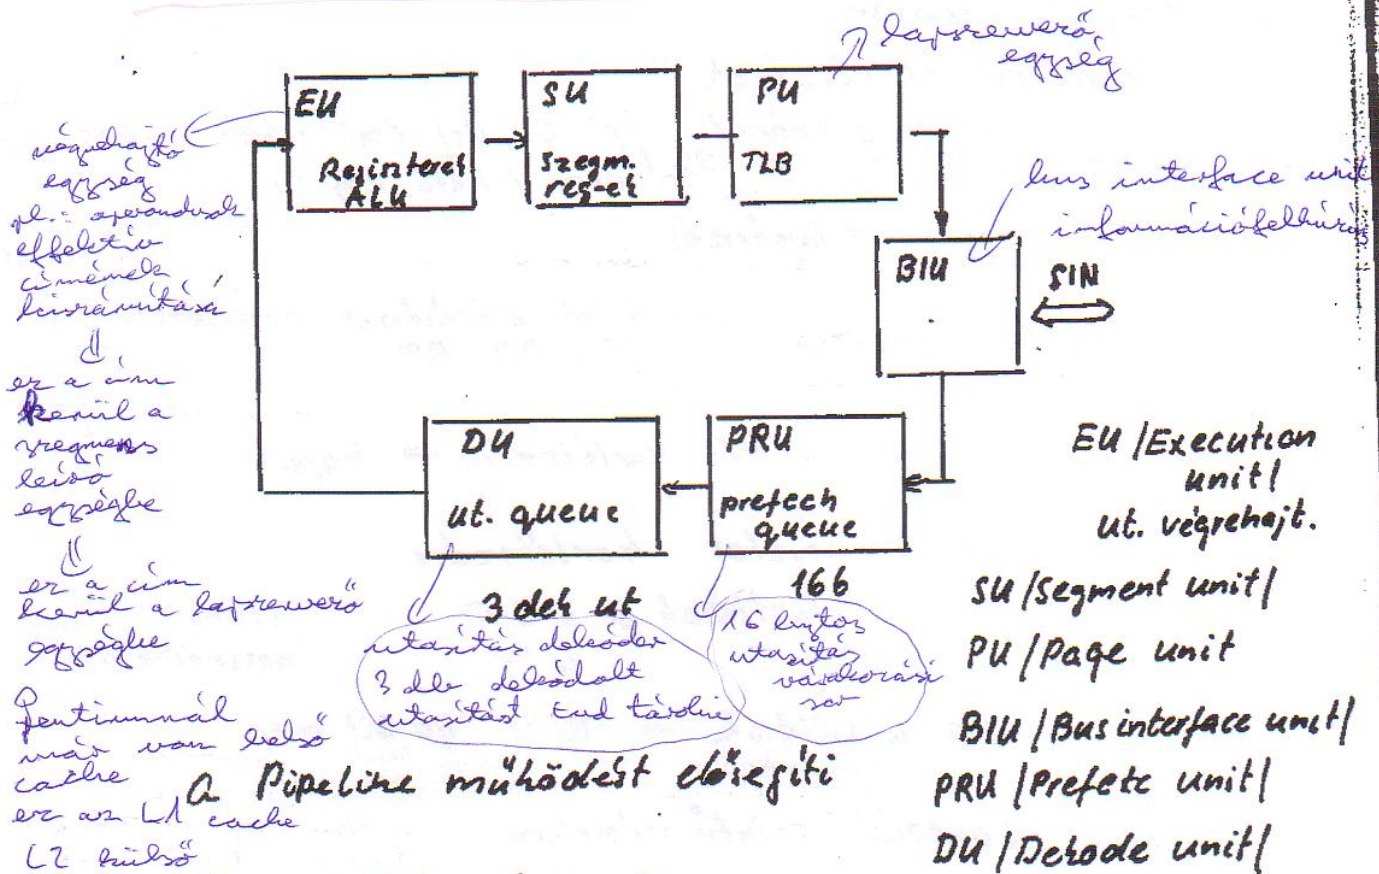 lapszervező
egység
EU
Regiszterek
ALU
SU
szegm.
reg-ek
PU
TLB
végrehajtó
egység
pl.: operandusok
effektív
címének
kiszámítása
⇓
ez a cím
kerül a
szegmens
leíró
egységbe
⇓
ez a cím
kerül a lapszervező
egységbe
Pentiumnál
már van belső
cache
ez az L1 cache
L2 külső
bus interface unit
információfelhúzó
BIU
SIN
DU
ut. queue
PRU
prefech
queue
3 dek ut
16b
utasítás dekóder
3 db dekódolt
utasítást tud tárolni
16 bytos
utasítás
várakozási
sor
A Pipeline működést elősegíti
EU /Execution
unit/
ut. végrehajt.
SU /Segment unit/
PU /Page unit
BIU /Bus interface unit/
PRU /Prefetc unit/
DU /Dekode unit/